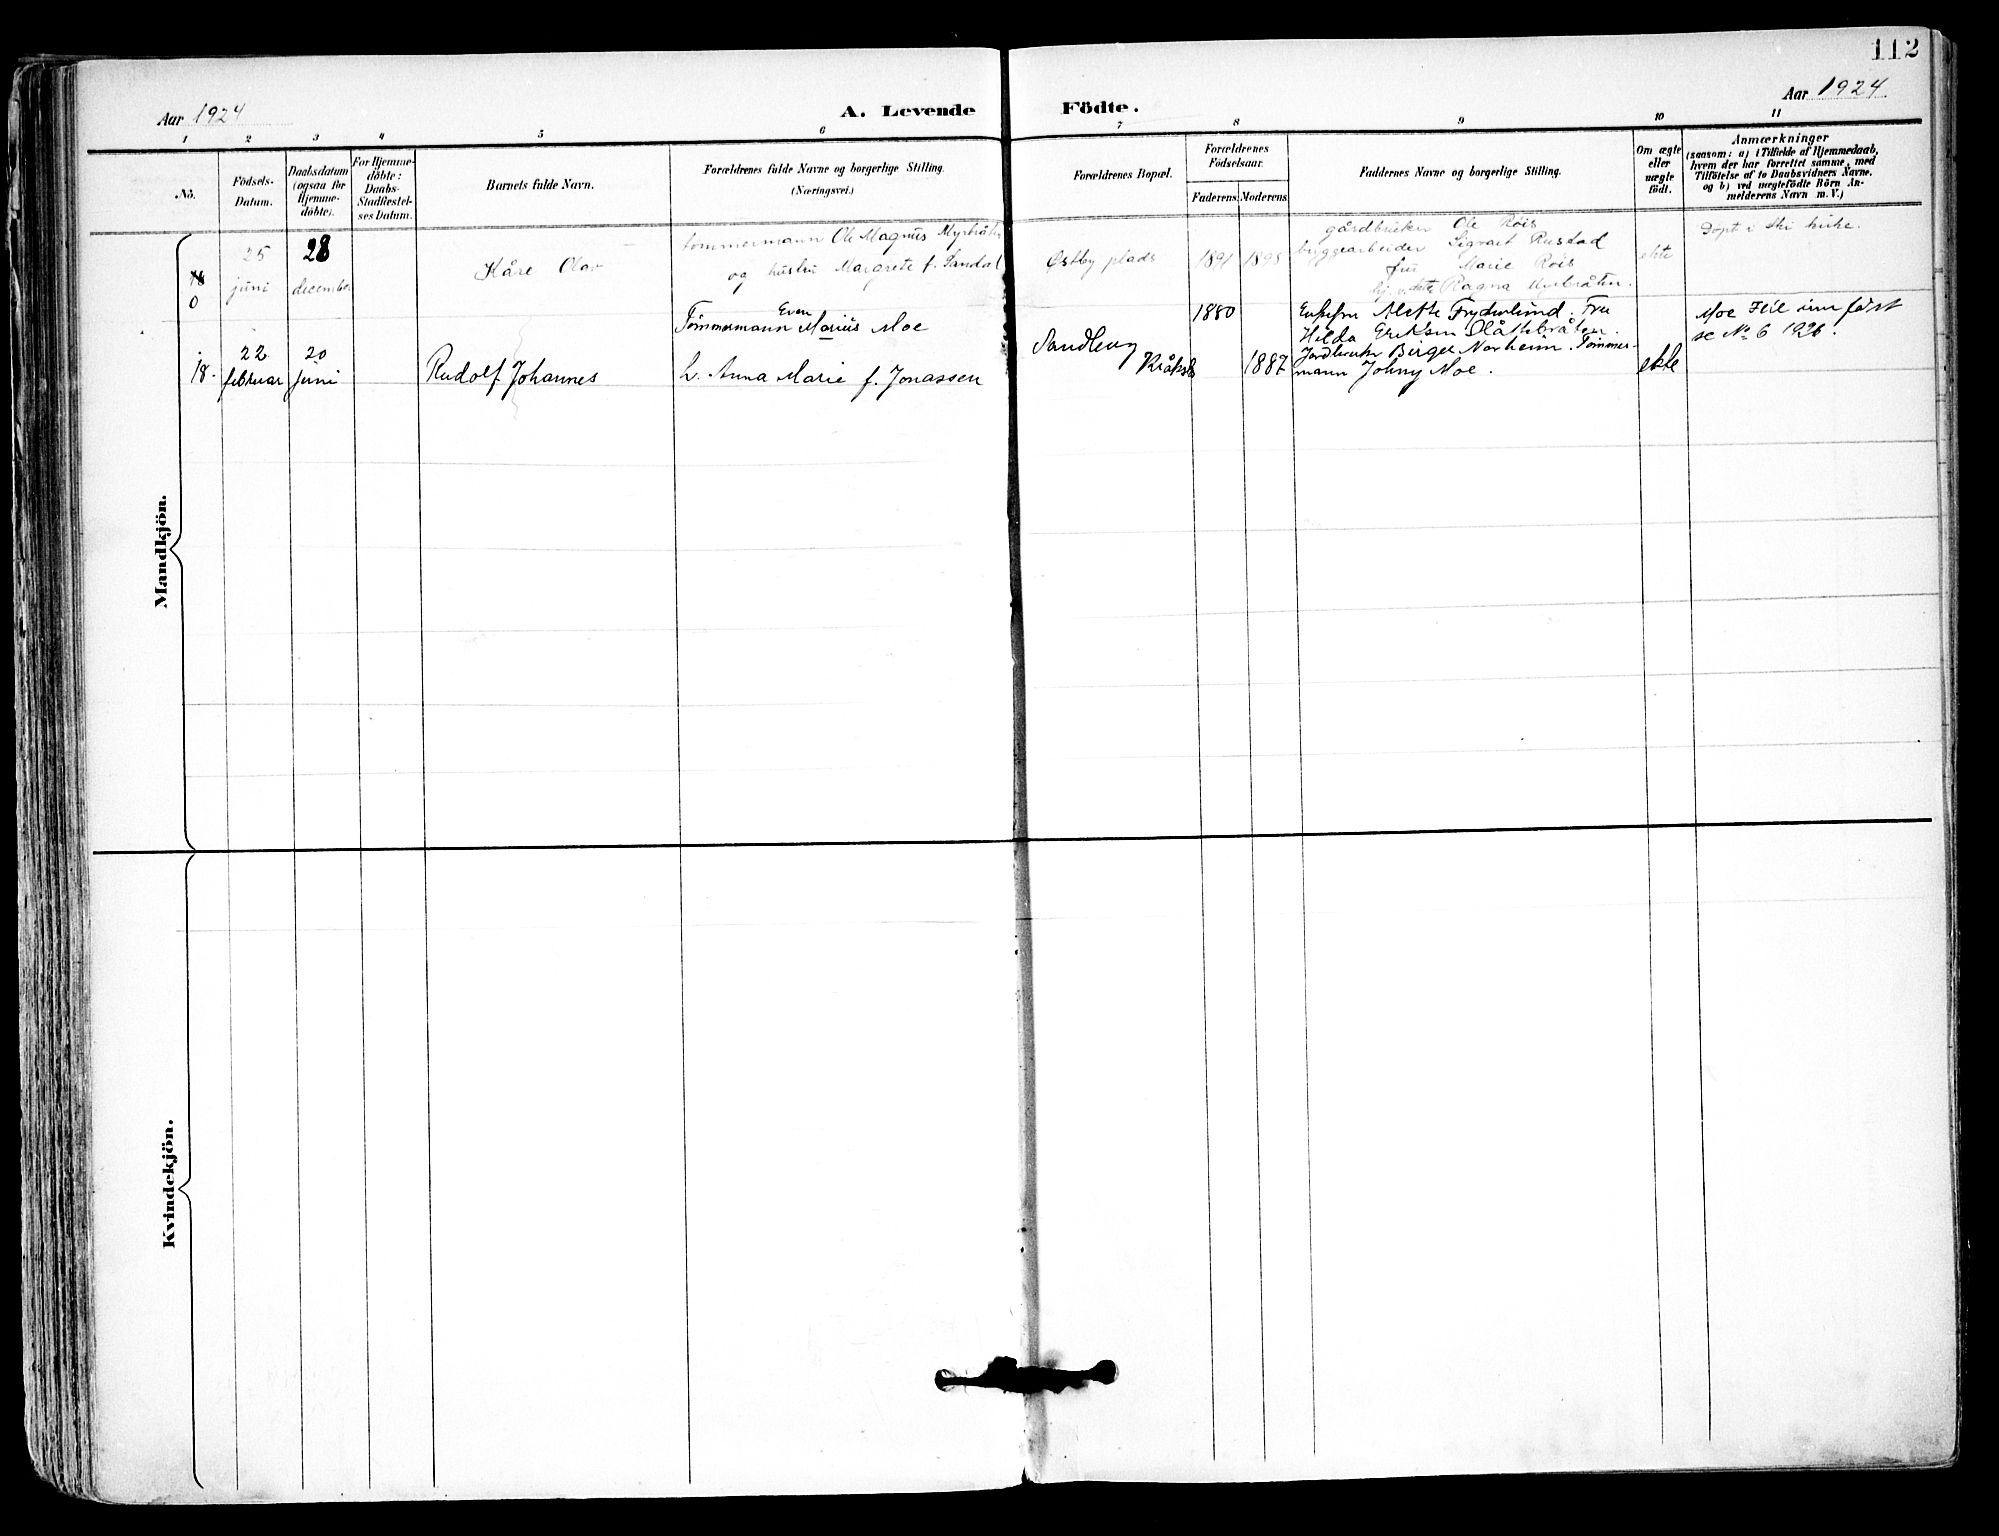 112
Aar 1924
A. Levende
Födte.
Aar 1924
1 2 3 4 5 6 7 8 9 10 11
No.
Födsels-
Datum.
Daabsdatum
(ogsaa for
Hjemme-
döbte).
For Hjemme-
döbte:
Daabs-
Stadfæstel-
ses Datum.
Barnets fulde Navn.
Forældrenes fulde Navne og borgerlige Stilling.
(Næringsvei.)
Forældrenes Bopæl.
Forældrenes
Födselsaar.
Faderens. Moderens.
Faddernes Navne og borgerlige Stilling.
Om ægte
eller
uægte
födt.
Anmærkninger
(saasom: a) i Tilfælde af Hjemmedaab,
hvem der har forrettet samme, med
Tilföielse af to Daabsvidners Navne.
og b) ved uægtefödte Börn An-
melderens Navn m. V.)
Mandkjön.
18
0
25
juni
28
december
Kåre Olav
tømmermann Ole Magnus Myrbråten
og hustru Margrete f. Sandal
Østby plads
1891 1898
gårdbruker Ole Røis
byggearbeider Sigvart Rustad
fru Marie Røis
Ragna Myrbråten.
ekte
Døpt i Ski kirke.
18.
22
februar
20
juni
Rudolf Johannes
Even
Tømmermann Marius Moe
h. Anna Marie f. Jonassen
Sandberg
Kråkst
1880
1887
Enkefru Alette Frydenlund. Fru
Hilda Eriksen Slåttebråten.
Jordbruker Birger Norheim. Tømmer-
mann Johny Moe.
ekte
Moe Feil innført
se No 6 1926.
Kvindekjön.